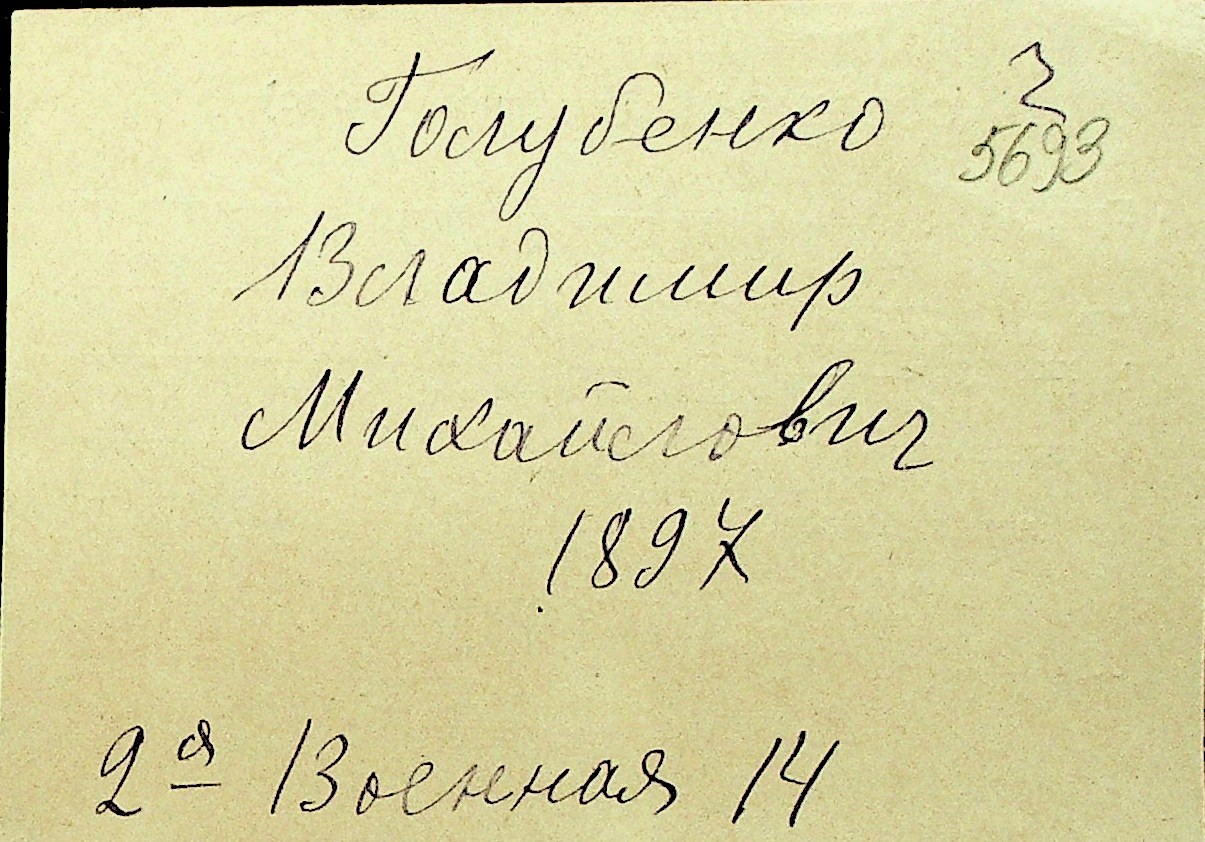 Голубенко
5693
Владимир
Михайлович
1897
2я Военная 14